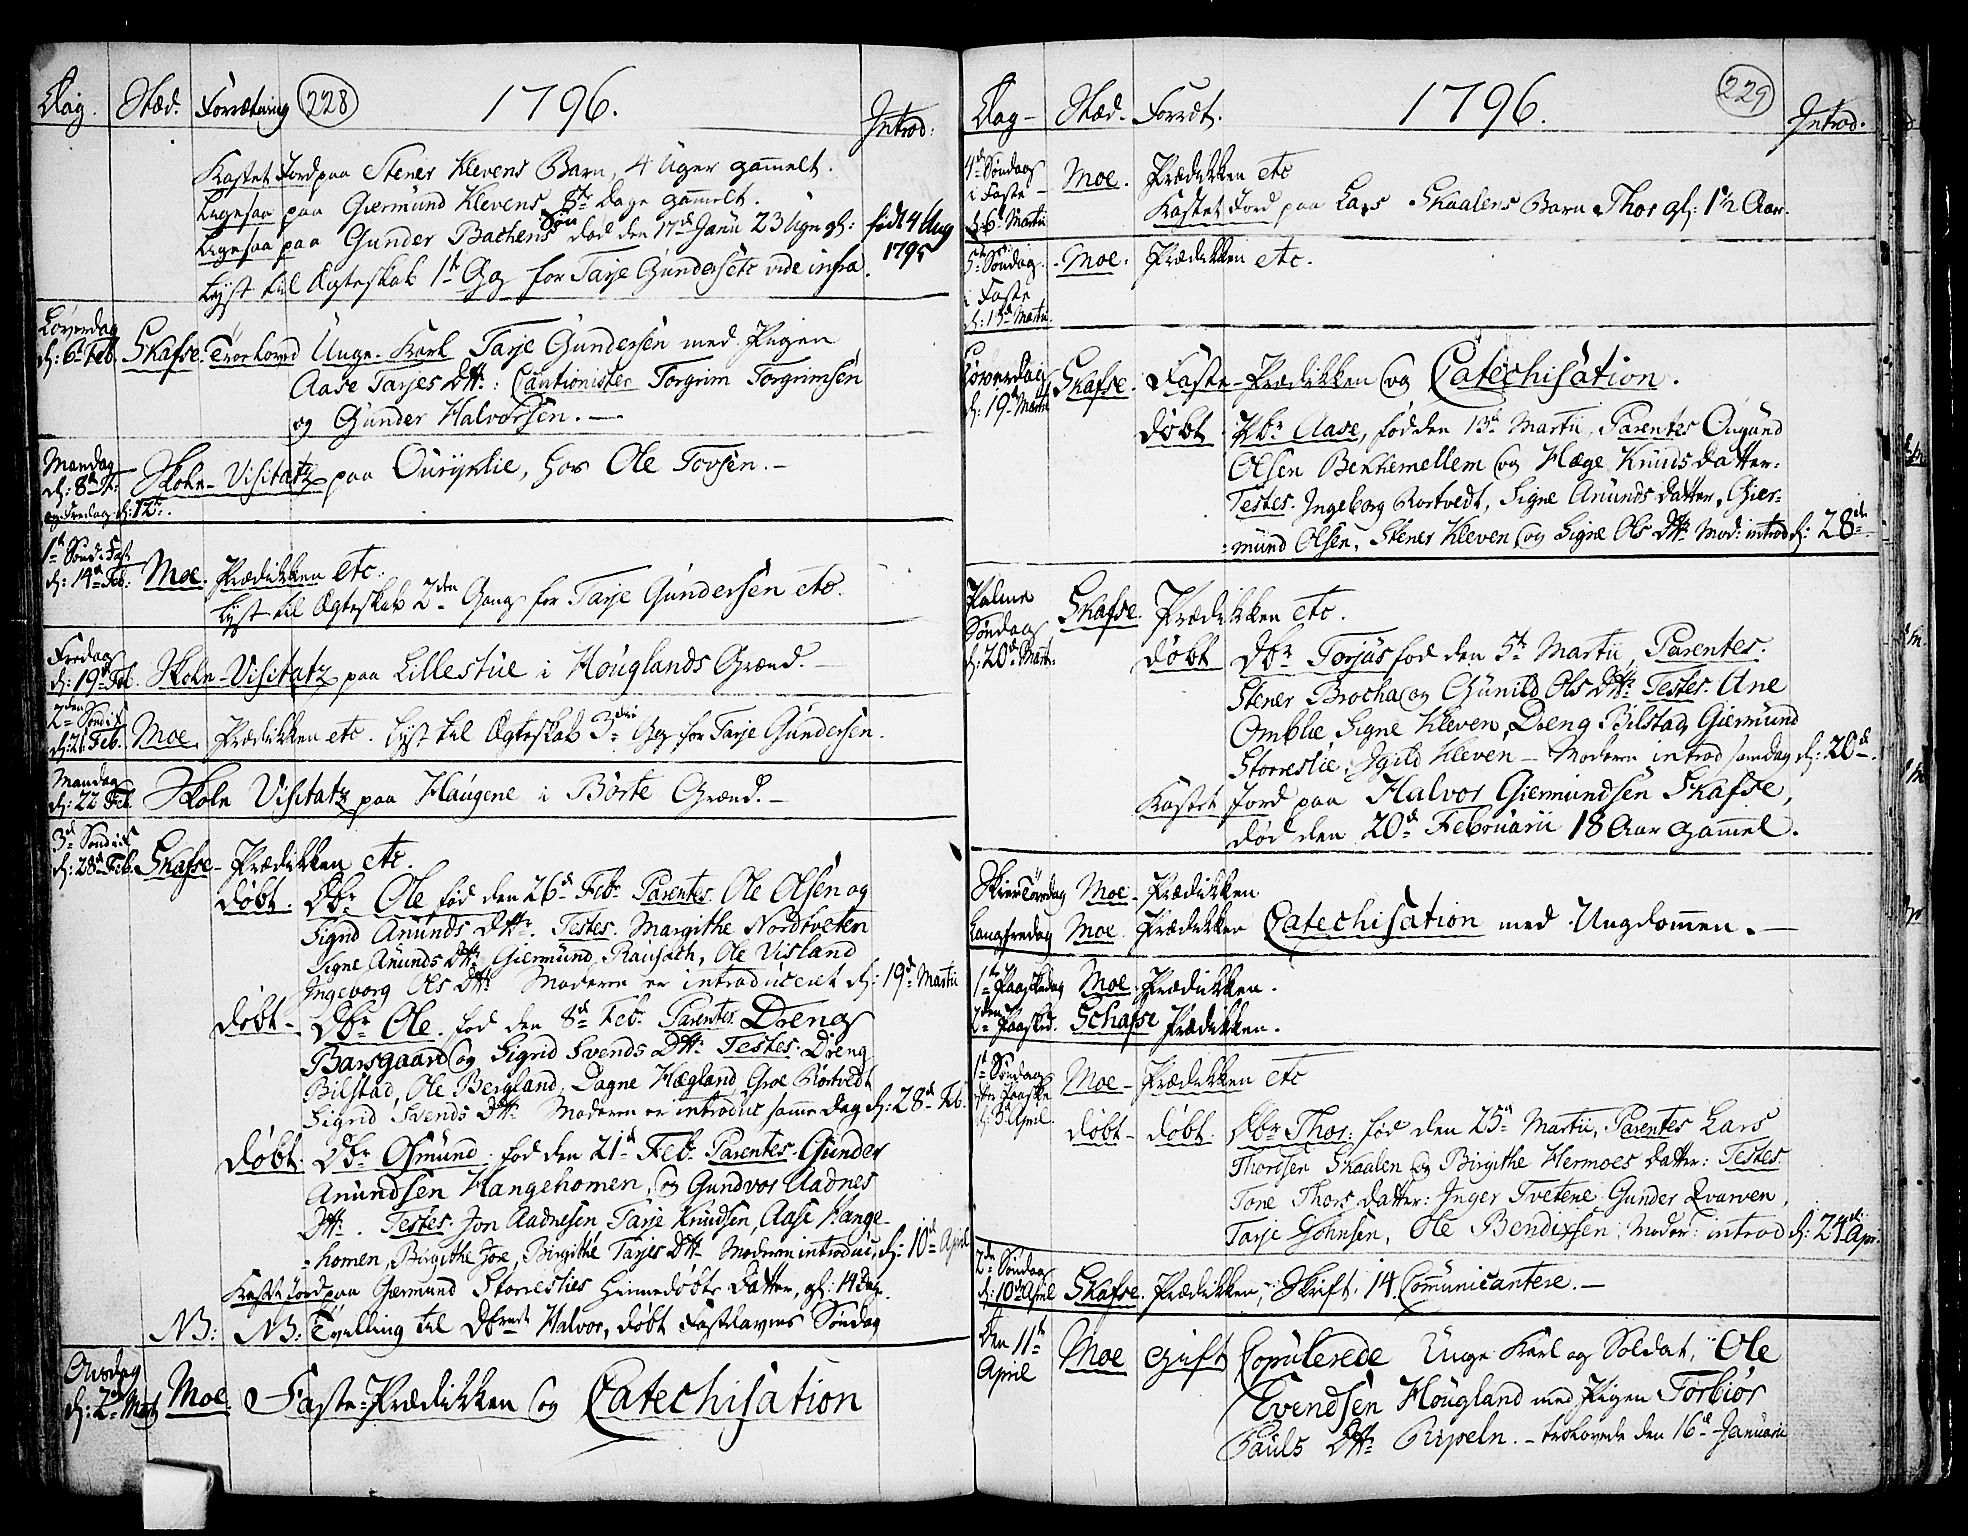 Dag. Stæd. Forrætning 228 1796. Introd:
Kastet Jord paa Stener Klevens Barn, 4 Uger gammelt.
Ligesaa paa Giermund Klevens 8te Dage gammelt.
Ligesaa paa Gunder Bachens Søn død den 17de Janu 23 Uger gl: født 4 Aug 1795
Lyst til Ægteskab 1te Gg for Tarje Gunders etc vide infra.
Løverdag d: 6te Feb. Skafse. Troeloved Unge-Karl Tarje Gundersen med Pigen
Aase Tarjes Dttr: Cautionister Torgrim Torgrimsen
og Gunder Halvorsen. —
Mandag d: 8de
og Fredag d: 12te. Skole-Visitatz paa hos Ole Tovsen. —
1te Sønd: Fast
d: 14de Feb: Moe. Prædikken etc.
Lyst til Ægteskab 2den Gang for Tarje Gundersen etc.
Fredag
d: 19de Feb. Skole-Visitatz paa Lillestue i Houglands Grænd. —
2den Sønd: i F
d: 21 Feb. Moe. Prædikken etc. Lyst til Ægteskab 3die Gg for Tarje Gundersen.
Mandag
d: 22 Feb. Skole Visitatz paa Haugene i Børte Grænd. —
3de Sønd: i F
d: 28de Feb. Skafse - Prædikken etc.
døbt. Dbr Ole fød den 26de Febr Parentes Ole Olsen og
Sigrid Anunds Dttr. Testes. Margithe Nordtveten
Signe Anunds Dttr Giermund Ole Visland
Ingevorg Ols Dttr Moderen er introduceret d: 19de Martii
døbt - Dbr Ole. fød den 8de Febr Parentes Dreng
Barsgaard og Sigrid Svends Dttr Testes: Dreng
Bilstad, Ole Bergland, Dagne Hægland, Groe Rortvedt
Sigrid Svends Dttr Moderen er introduc samme Dag d: 28de Feb.
døbt. Dbr Osmund. fød den 21de Feb. Parentes. Gunder
Anundsen Hangehomen, og Gundvor Aadnes
Dttr. Testes. Jon Aadnesen, Tarje Knudsen, Aase Hange-
-homen, Birgithe Joe, Birgithe Tarjes Dttr Moderen introduc: d: 10de April
Kastet Jord paa Giermund Storreslies hiemedøbte Datter, gl: 14 Dag.
NB: NB: Tvilling til Dbrndt Halvor, døbt Fastelavns Søndag
Onsdag
d: 2den Mart Moe. Faste-Prædikken og Catechisation
Dag - Stæd. Forrdt. 1796. 229 Introd.
4de Søndag
i Faste
d: 6te Martii Moe. Prædikken etc
Kastet Jord paa Lars Skaalens Barn Thor gl: 1½ Aar.
5te Søndag
i Faste
d: 13de Martii. Moe. Prædikken etc.
Løverdag
d: 19de Martii Skafse. Faste-Prædikken og Catechisation.
døbt Pbr Aase, fød den 13de Martii, Parentes Ougund
Olsen Bekhemellem og Hæge Knuds Datter:
Testes. Ingeborg Rortvedt, Signe Anunds Datter, Gier-
-mund Olsen, Stener Kleven og Signe Ols Dttr Mod: introd d: 28de
Palme
Søndag
d: 20de Mart: Skafse. Prædikken etc.
døbt Dbr Torjus fød den 5te Martii, Parentes.
Stener Brocha og Gunild Ols Dttr Testes. Ane
Omblie Signe Kleven, Dreng Bilstad, Giermund
Storreslie, Igild Kleven — Moderen introd samedag d: 20de.
Kastet Jord paa Halvor Giermundsen Skafse,
død den 20de Februarii 18 Aar gammel.
Skiertorsdag Moe - Prædikken
Langfredag Moe. Prædikken Catechisation med Ungdommen. —
1te Paaskedag Moe Prædikken.
2den Paaskd. Schafse Prædikken.
1te Søndag
efter Paaske
d: 3de April. Moe - Prædikken etc
døbt - døbt. Dbr Thor: fød den 25de Martii, Parentes Lars
Thordsen Skaalen og Birgithe Hermoes Datter: Testes.
Tone Thors Datter: Inger Tvetene Gunder Qvarven,
Tarje Johnsen, Ole Bendixsen; Moder: introd d: 24de Apr.
2den Søndag
d: 10de April Skafse. Prædikken, Skrift. 14. Communicantere. —
Den 11te
April Moe gift Copulerede Unge Karl og Soldat, Ole
Evendsen Hougland med Pigen Torbiør
Pauls Dttr Ripeln. — trolovede den 16de Januarii